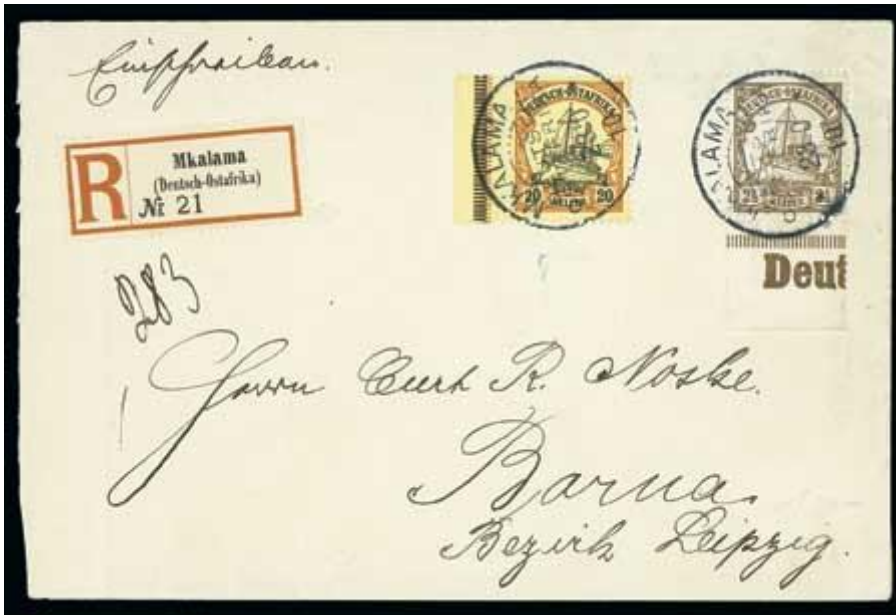 Einschreiben.
R
Mkalama
(Deutsch-Ostafrika)
№ 21
DEUTSCH-OSTAFRIKA
20 20
HELLER
ALAMA
DEUTSCH-OSTAFRIKA
2½ 2½
HELLER
LAMA
Deut
283
Herrn Curt R. Noske.
Borna
Bezirk Leipzig.